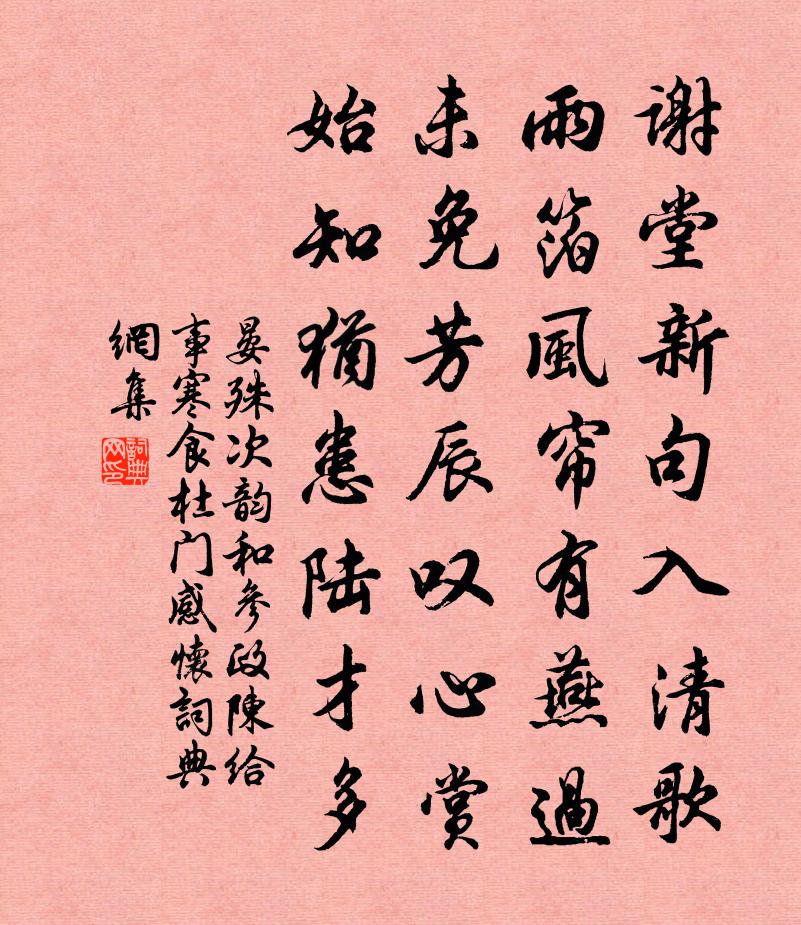 谢堂新句入清歌
雨箔風帘有燕過
未免芳辰叹心赏
始知猶患陆才多
晏殊次韵和參政陳給
事寒食杜门感懷詞典
網集
詞典
网印